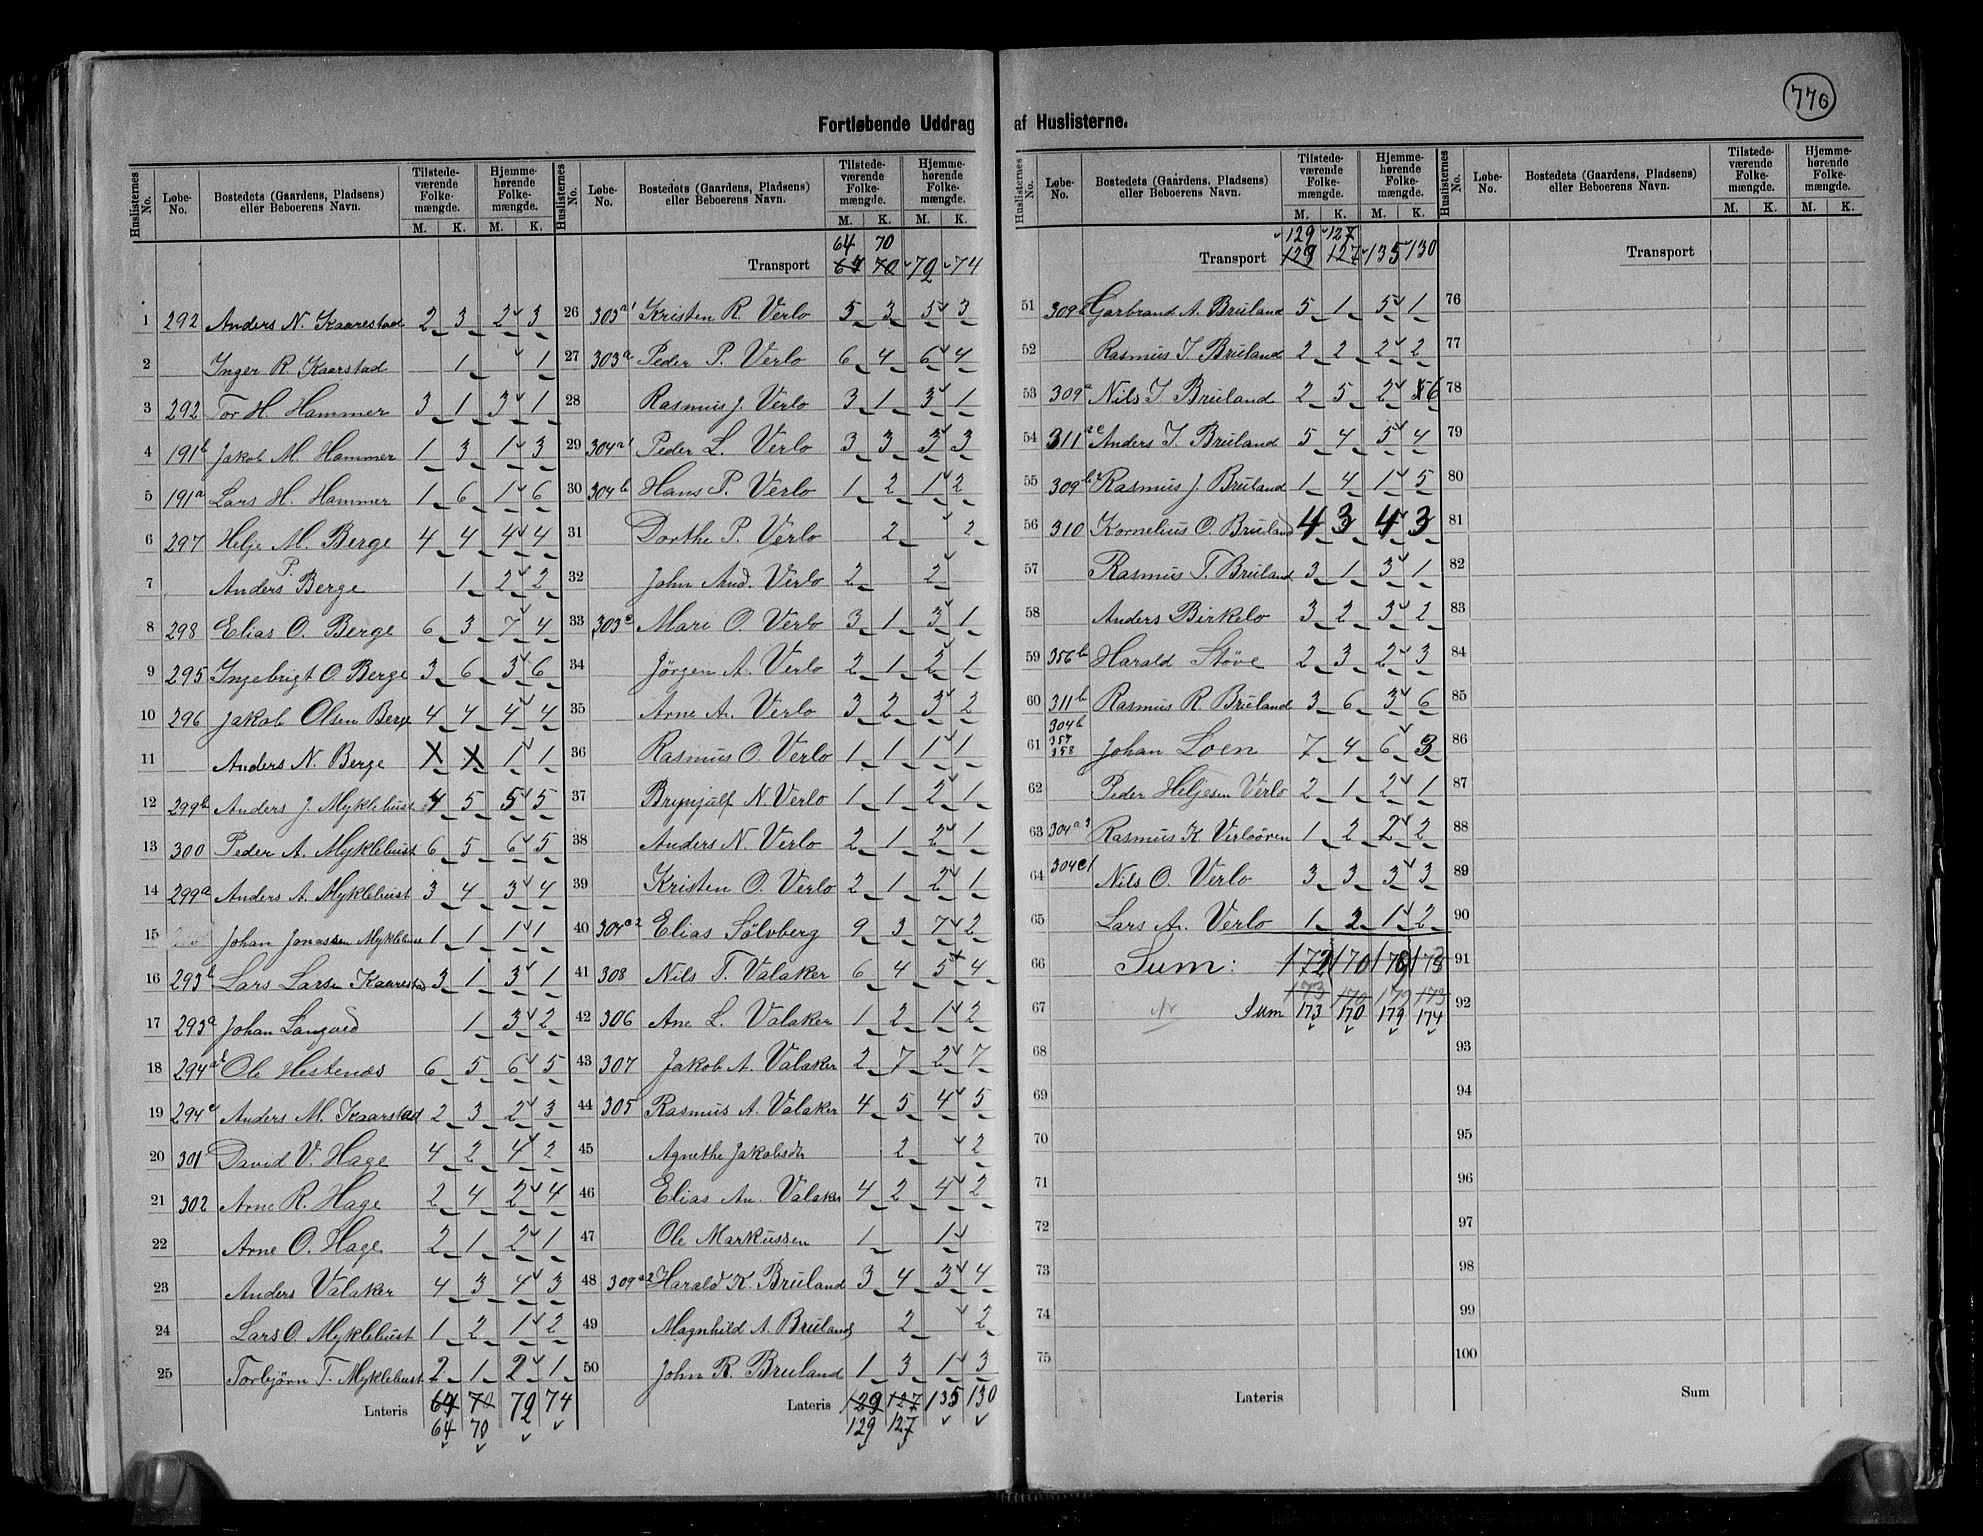 776
Fortløbende Uddrag af Huslisterne.
Huslisternes No. | Løbe-No. | Bostedets (Gaardens, Pladsens) eller Beboerens Navn. | Tilstedeværende Folkemængde. M. K. | Hjemmehørende Folkemængde. M. K.
1 292 Anders N. Kaarestad 2 3 2 3
2 Inger R. Kaarstad 1 1
3 292 Tor H. Hammer 3 1 3 1
4 191b Jakob M. Hammer 1 3 1 3
5 191a Lars H. Hammer 1 6 1 6
6 297 Helje M. Berge 4 4 4 4
7 Anders P. Berge 1 2 2
8 298 Elias O. Berge 6 3 7 4
9 295 Ingebrigt O. Berge 3 6 3 6
10 296 Jakob Olsen Berge 4 4 4 4
11 Anders N. Berge X X 1 1
12 299b Anders J. Myklebust 4 5 5 5
13 300 Peder A. Myklebust 6 5 6 5
14 299a Anders A. Myklebust 3 4 3 4
15 Johan Jonassen Myklebust 1 1 1 1
16 293b Lars Larsen Kaarestad 3 1 3 1
17 293a Johan Langved 1 3 2
18 294a Ole Hestenes 6 5 6 5
19 294c Anders M. Kaarstad 2 3 2 3
20 301 David V. Hage 4 2 4 2
21 302 Arne R. Hage 2 4 2 4
22 Arne O. Hage 2 1 2 1
23 Anders Valaker 4 3 4 3
24 Lars O. Myklebust 1 2 1 2
25 Torbjörn T. Myklebust 2 1 2 1
Lateris 64 70 72 74
64 70
Huslisternes No. | Løbe-No. | Bostedets (Gaardens, Pladsens) eller Beboerens Navn. | Tilstedeværende Folkemængde. M. K. | Hjemmehørende Folkemængde. M. K.
64 70
Transport 64 70 72 74
26 303a1 Kristen R. Verlo 5 3 5 3
27 303a Peder P. Verlo 6 4 6 4
28 Rasmus J. Verlo 3 1 3 1
29 304a1 Peder L. Verlo 3 3 3 3
30 304b Hans P. Verlo 1 2 1 2
31 Dorthe P. Verlo 2 2
32 John And. Verlo 2 2
33 303c Mari O. Verlo 3 1 3 1
34 Jörgen A. Verlo 2 1 2 1
35 Arne A. Verlo 3 2 3 2
36 Rasmus O. Verlo 1 1 1 1
37 Brynjulf N. Verlo 1 1 2 1
38 Anders N. Verlo 2 1 2 1
39 Kristen O. Verlo 2 1 2 1
40 304c2 Elias Sölvberg 9 3 7 2
41 308 Nils T. Valaker 6 4 5 4
42 306 Ane L. Valaker 1 2 1 2
43 307 Jakob A. Valaker 2 7 2 7
44 305 Rasmus A. Valaker 4 5 4 5
45 Agnethe Jakobsdtr 2 2
46 Elias An. Valaker 4 2 4 2
47 Ole Markussen 1 1
48 309a2 Harald K. Bruland 3 4 3 4
49 Magnhild A. Bruland 2 2
50 John R. Bruland 1 3 1 3
Lateris 129 127 135 130
129 127
Huslisternes No. | Løbe-No. | Bostedets (Gaardens, Pladsens) eller Beboerens Navn. | Tilstedeværende Folkemængde. M. K. | Hjemmehørende Folkemængde. M. K.
129 127
Transport 129 127 135 130
51 309b Garbrand A. Bruland 5 1 5 1
52 Rasmus I. Bruland 2 2 2 2
53 309a Nils I. Bruland 2 5 2 6
54 311ac Anders I. Bruland 5 4 5 4
55 309b Rasmus J. Bruland 1 4 1 5
56 310 Kornelius O. Bruland 4 3 4 3
57 Rasmus T. Bruland 3 1 3 1
58 Anders Birkelo 3 2 3 2
59 356b Harald Stöve 2 3 2 3
60 311b Rasmus R Bruland 3 6 3 6
61 304b 357 358 Johan Loen 7 4 6 3
62 Peder Heljesen Verlo 2 1 2 1
63 304a3 Rasmus K Verloören 1 2 2 2
64 304c1 Nils O. Verlo 3 3 3 3
65 Lars A. Verlo 1 2 1 2
66 Sum: 172 170 178 173
173 170 179 173
67 Sum 173 170 179 174
68
69
70
71
72
73
74
75
Lateris
Huslisternes No. | Løbe-No. | Bostedets (Gaardens, Pladsens) eller Beboerens Navn. | Tilstedeværende Folkemængde. M. K. | Hjemmehørende Folkemængde. M. K.
Transport
76
77
78
79
80
81
82
83
84
85
86
87
88
89
90
91
92
93
94
95
96
97
98
99
100
Sum